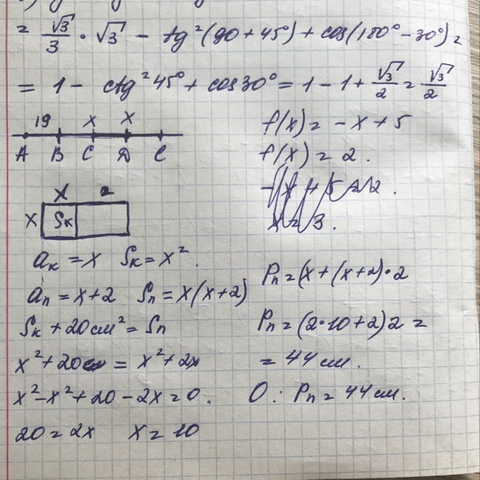 = √3/3 · √3 - tg²(90+45°) + cos(180°-30°) =
= 1 - ctg²45° + cos30° = 1 - 1 + √3/2 = √3/2
19 x x
A B C D E
x 2
x Sк
aк = x Sк = x².
aп = x+2 Sп = x(x+2)
Sк + 20 см² = Sп
x² + 20 = x² + 2x
x² - x² + 20 - 2x = 0.
20 = 2x x = 10
f(x) = -x + 5
f(x) = 2.
x = 3.
Pп = (x + (x+2)·2
Pп = (2·10+2)2 =
= 44 см.
О: Pп = 44 см.